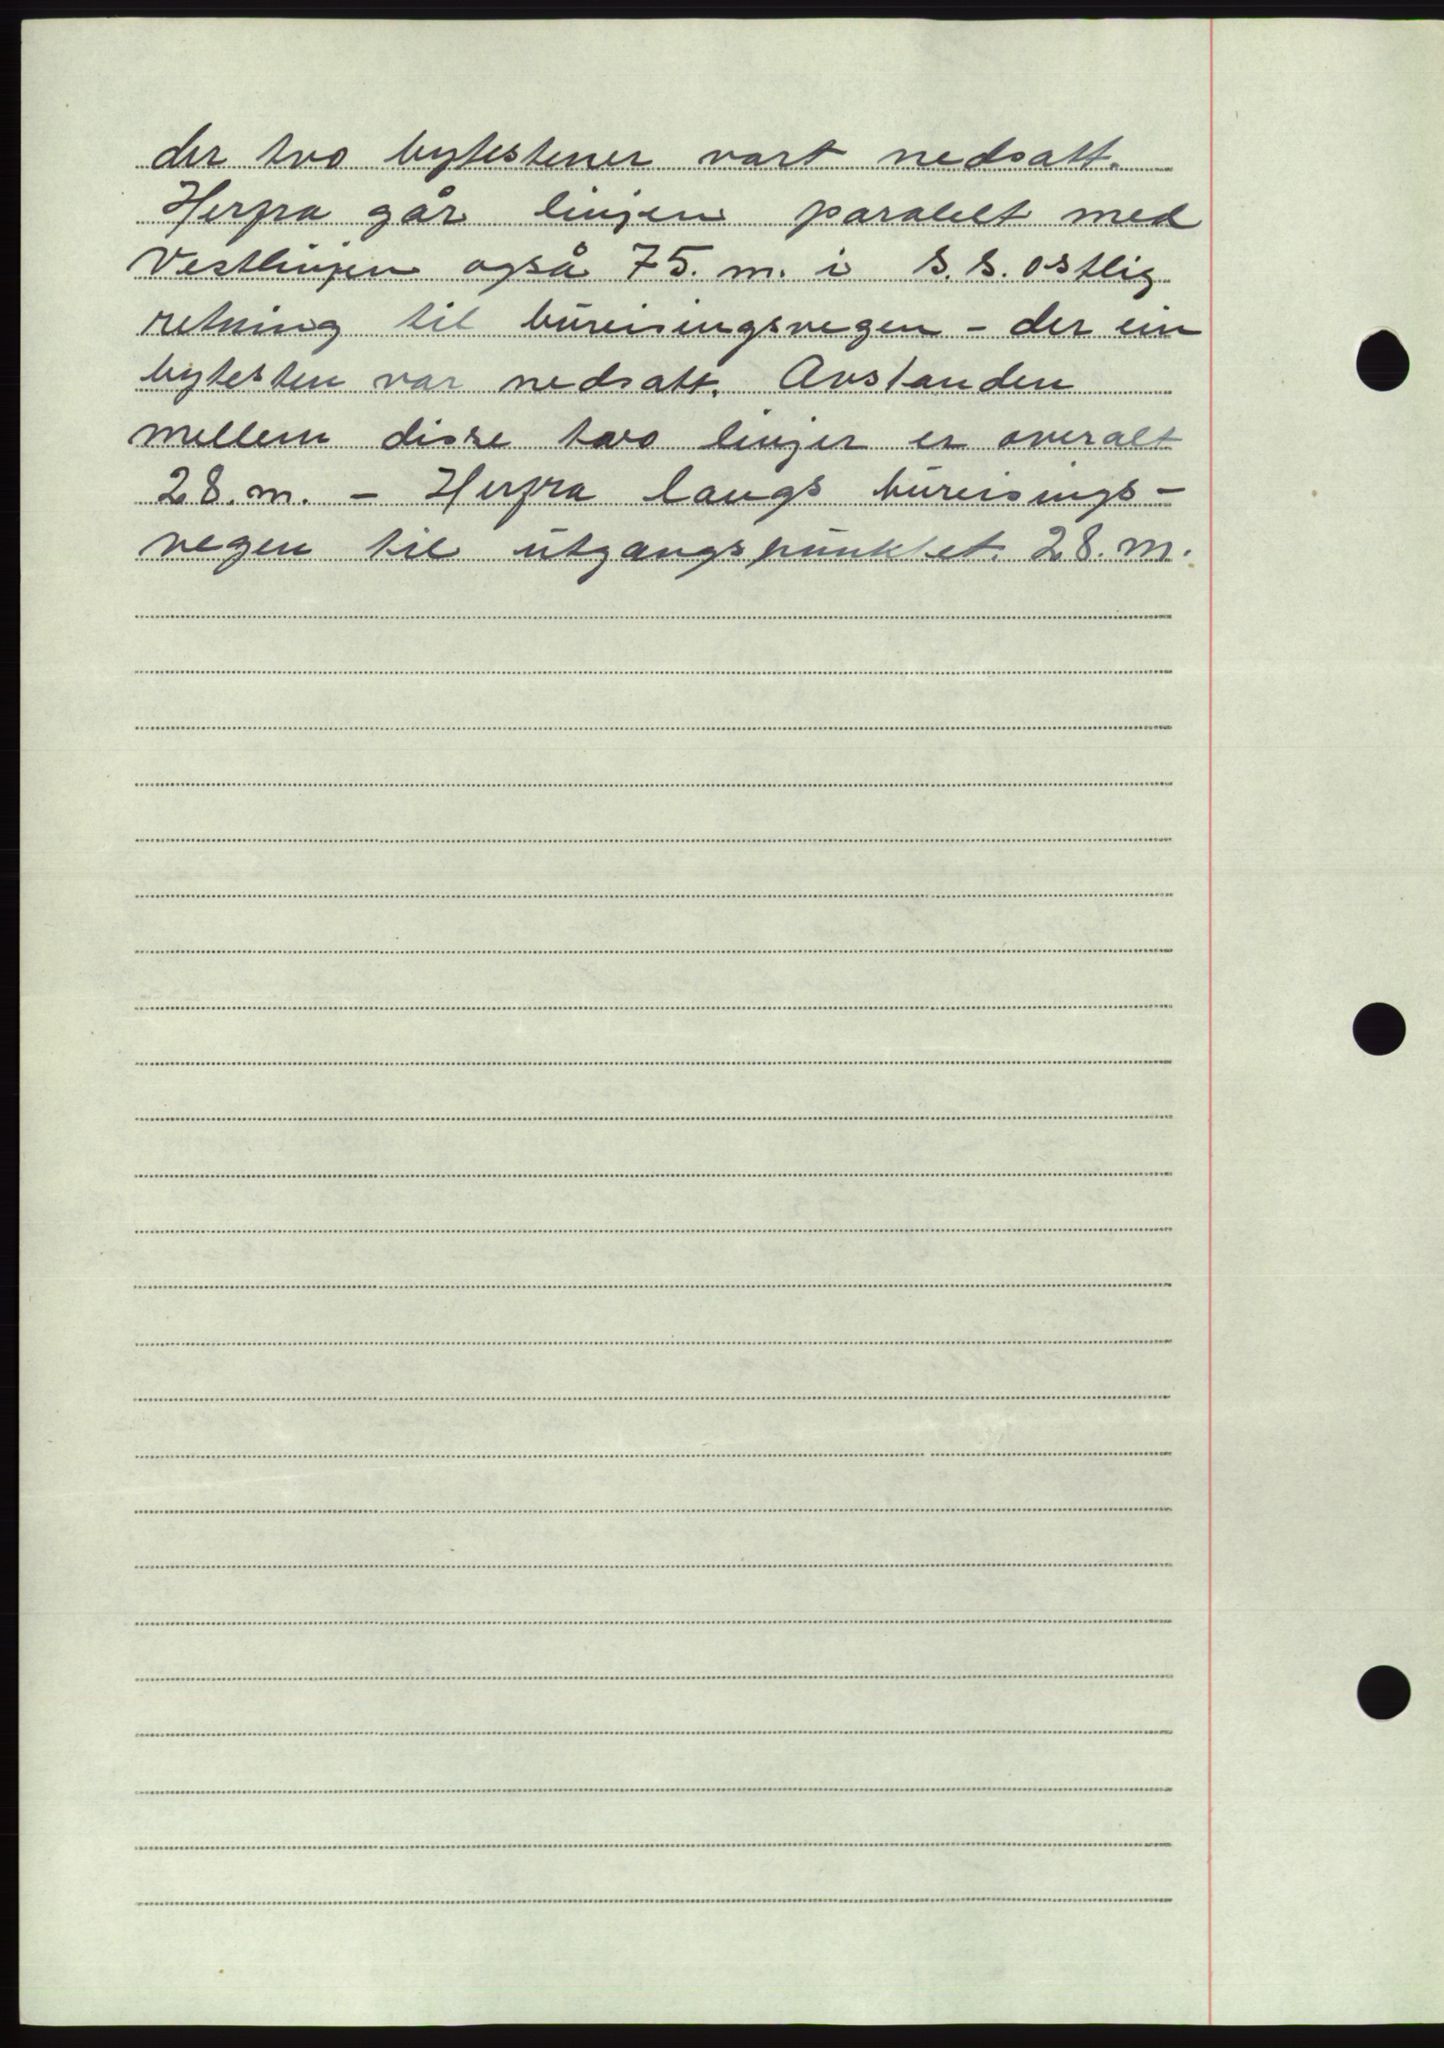 der tvo bytestener vart nedsatt.
Herfra går linjen paralelt med
Vestlinjen også 75. m. i S.S. ostlig
retning til bureisingsvegen - der ein
bytesten var nedsatt. Avstanden
mellem disse tvo linjer er overalt
28. m. - Herfra langs bureisings-
vegen til utgangspunktet. 28. m.